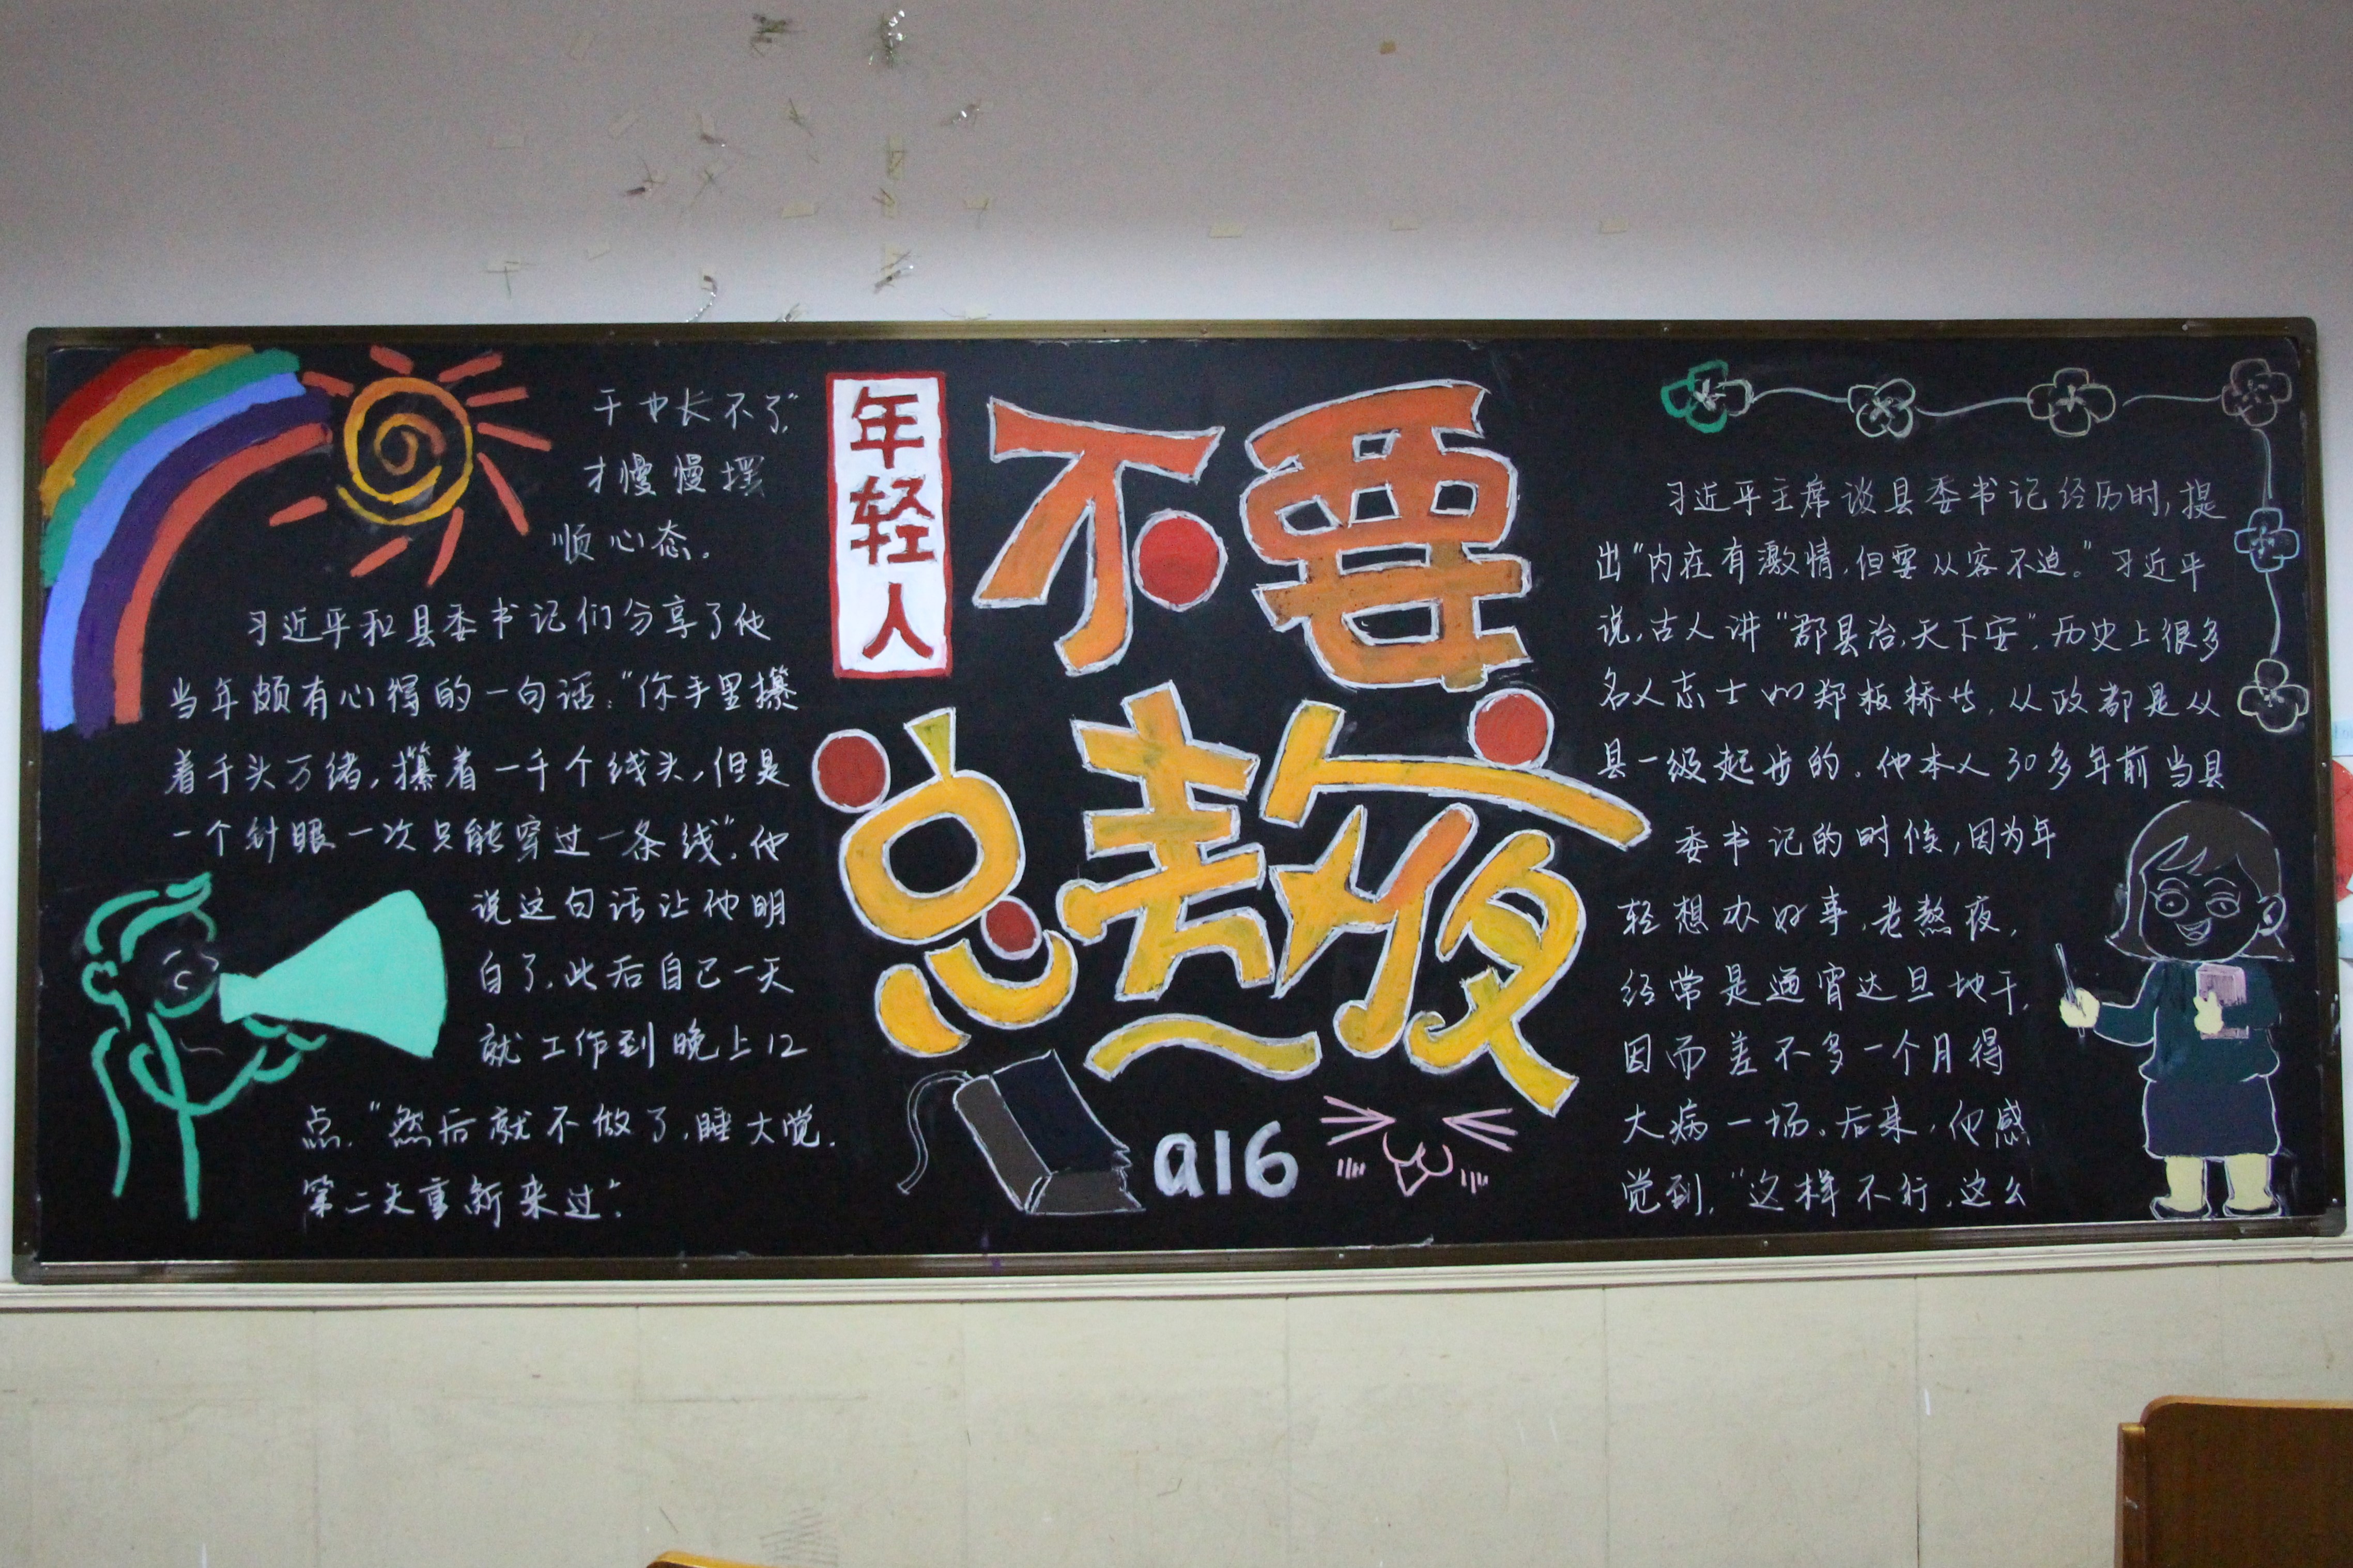 年轻人
不要
总熬夜
a16
习近平主席谈县委书记经历时,提
出“内在有激情,但要从容不迫。”习近平
说,古人讲“郡县治,天下安”,历史上很多
名人志士如郑板桥等,从政都是从
县一级起步的。他本人30多年前当县
委书记的时候,因为年
轻想办好事,老熬夜,
经常是通宵达旦地干,
因而差不多一个月得
大病一场。后来,他感
觉到,“这样不行,这么
干也长不了”
才慢慢摆
顺心态。
习近平和县委书记们分享了他
当年颇有心得的一句话:“你手里攥
着千头万绪,攥着一千个线头,但是
一个针眼一次只能穿过一条线”,他
说这句话让他明
白了,此后自己一天
就工作到晚上12
点,“然后就不做了,睡大觉,
第二天重新来过”.